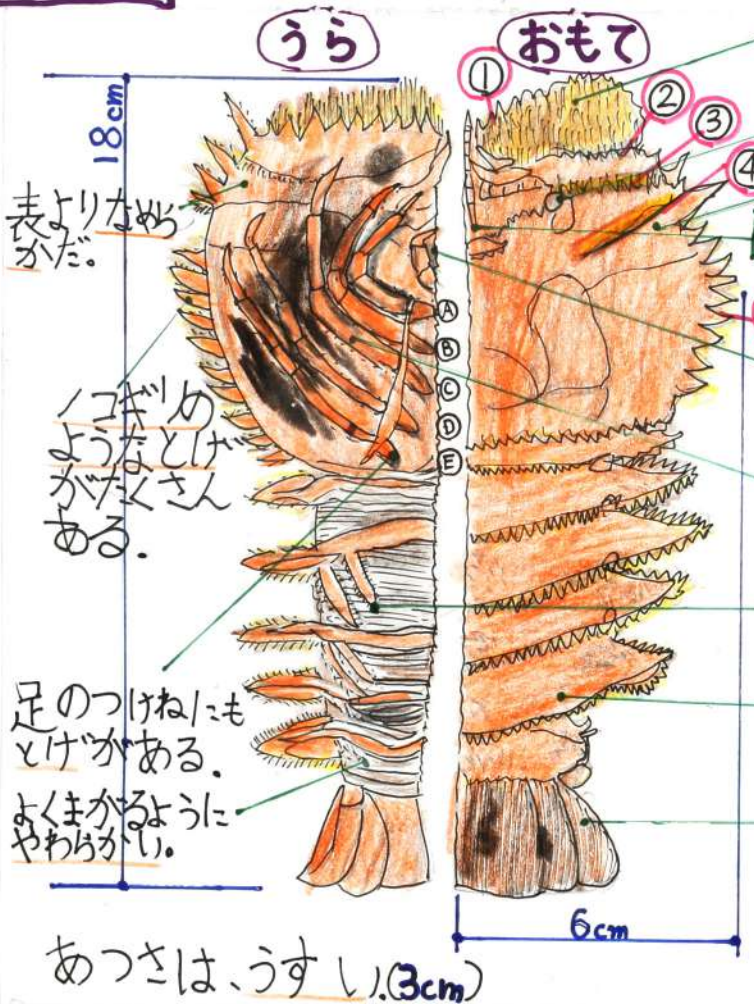 うら
おもて
18cm
①
②
③
④
表よりなめら
かだ。
ノコギリの
ようなとげ
がたくさん
ある.
Ⓐ
Ⓑ
Ⓒ
Ⓓ
Ⓔ
足のつけねにも
とげがある.
よくまがるように
やわらかい。
6cm
あつさは、うすい.(3cm)